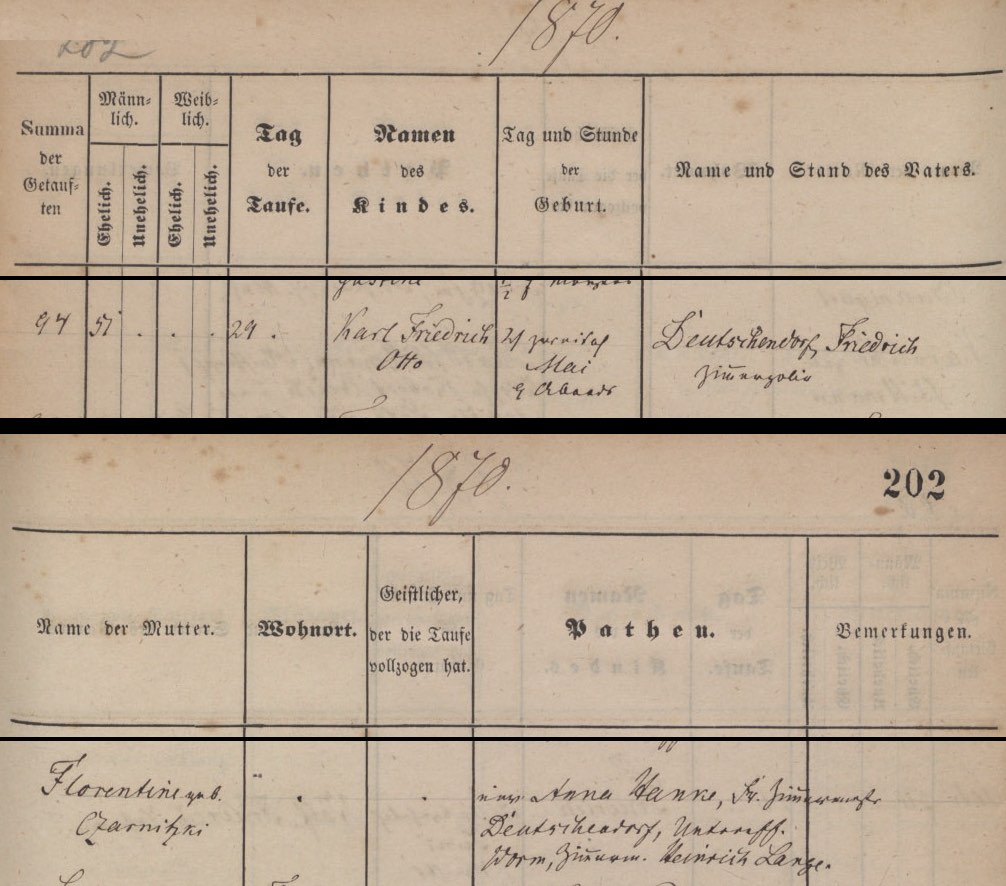 202
1870.
Summa der Getauften
Männlich.
Weiblich.
Ehelich.
Unehelich.
Ehelich.
Unehelich.
Tag der Taufe.
Namen des Kindes.
Tag und Stunde der Geburt.
Name und Stand des Vaters.
94 51 . . . 29 . Karl Friedrich
Otto
Mai
9 Abends
Deutschendorf, Friedrich
1870.
202
Name der Mutter.
Wohnort.
Geistlicher, der die Taufe vollzogen hat.
Pathen.
Bemerkungen.
Florentine geb.
Czarnitzki
" . .
Anna Hanke, Fr. Zimmermstr
Deutschendorf, Unteroff.
Worm, Zimmerm. Heinrich Lange.